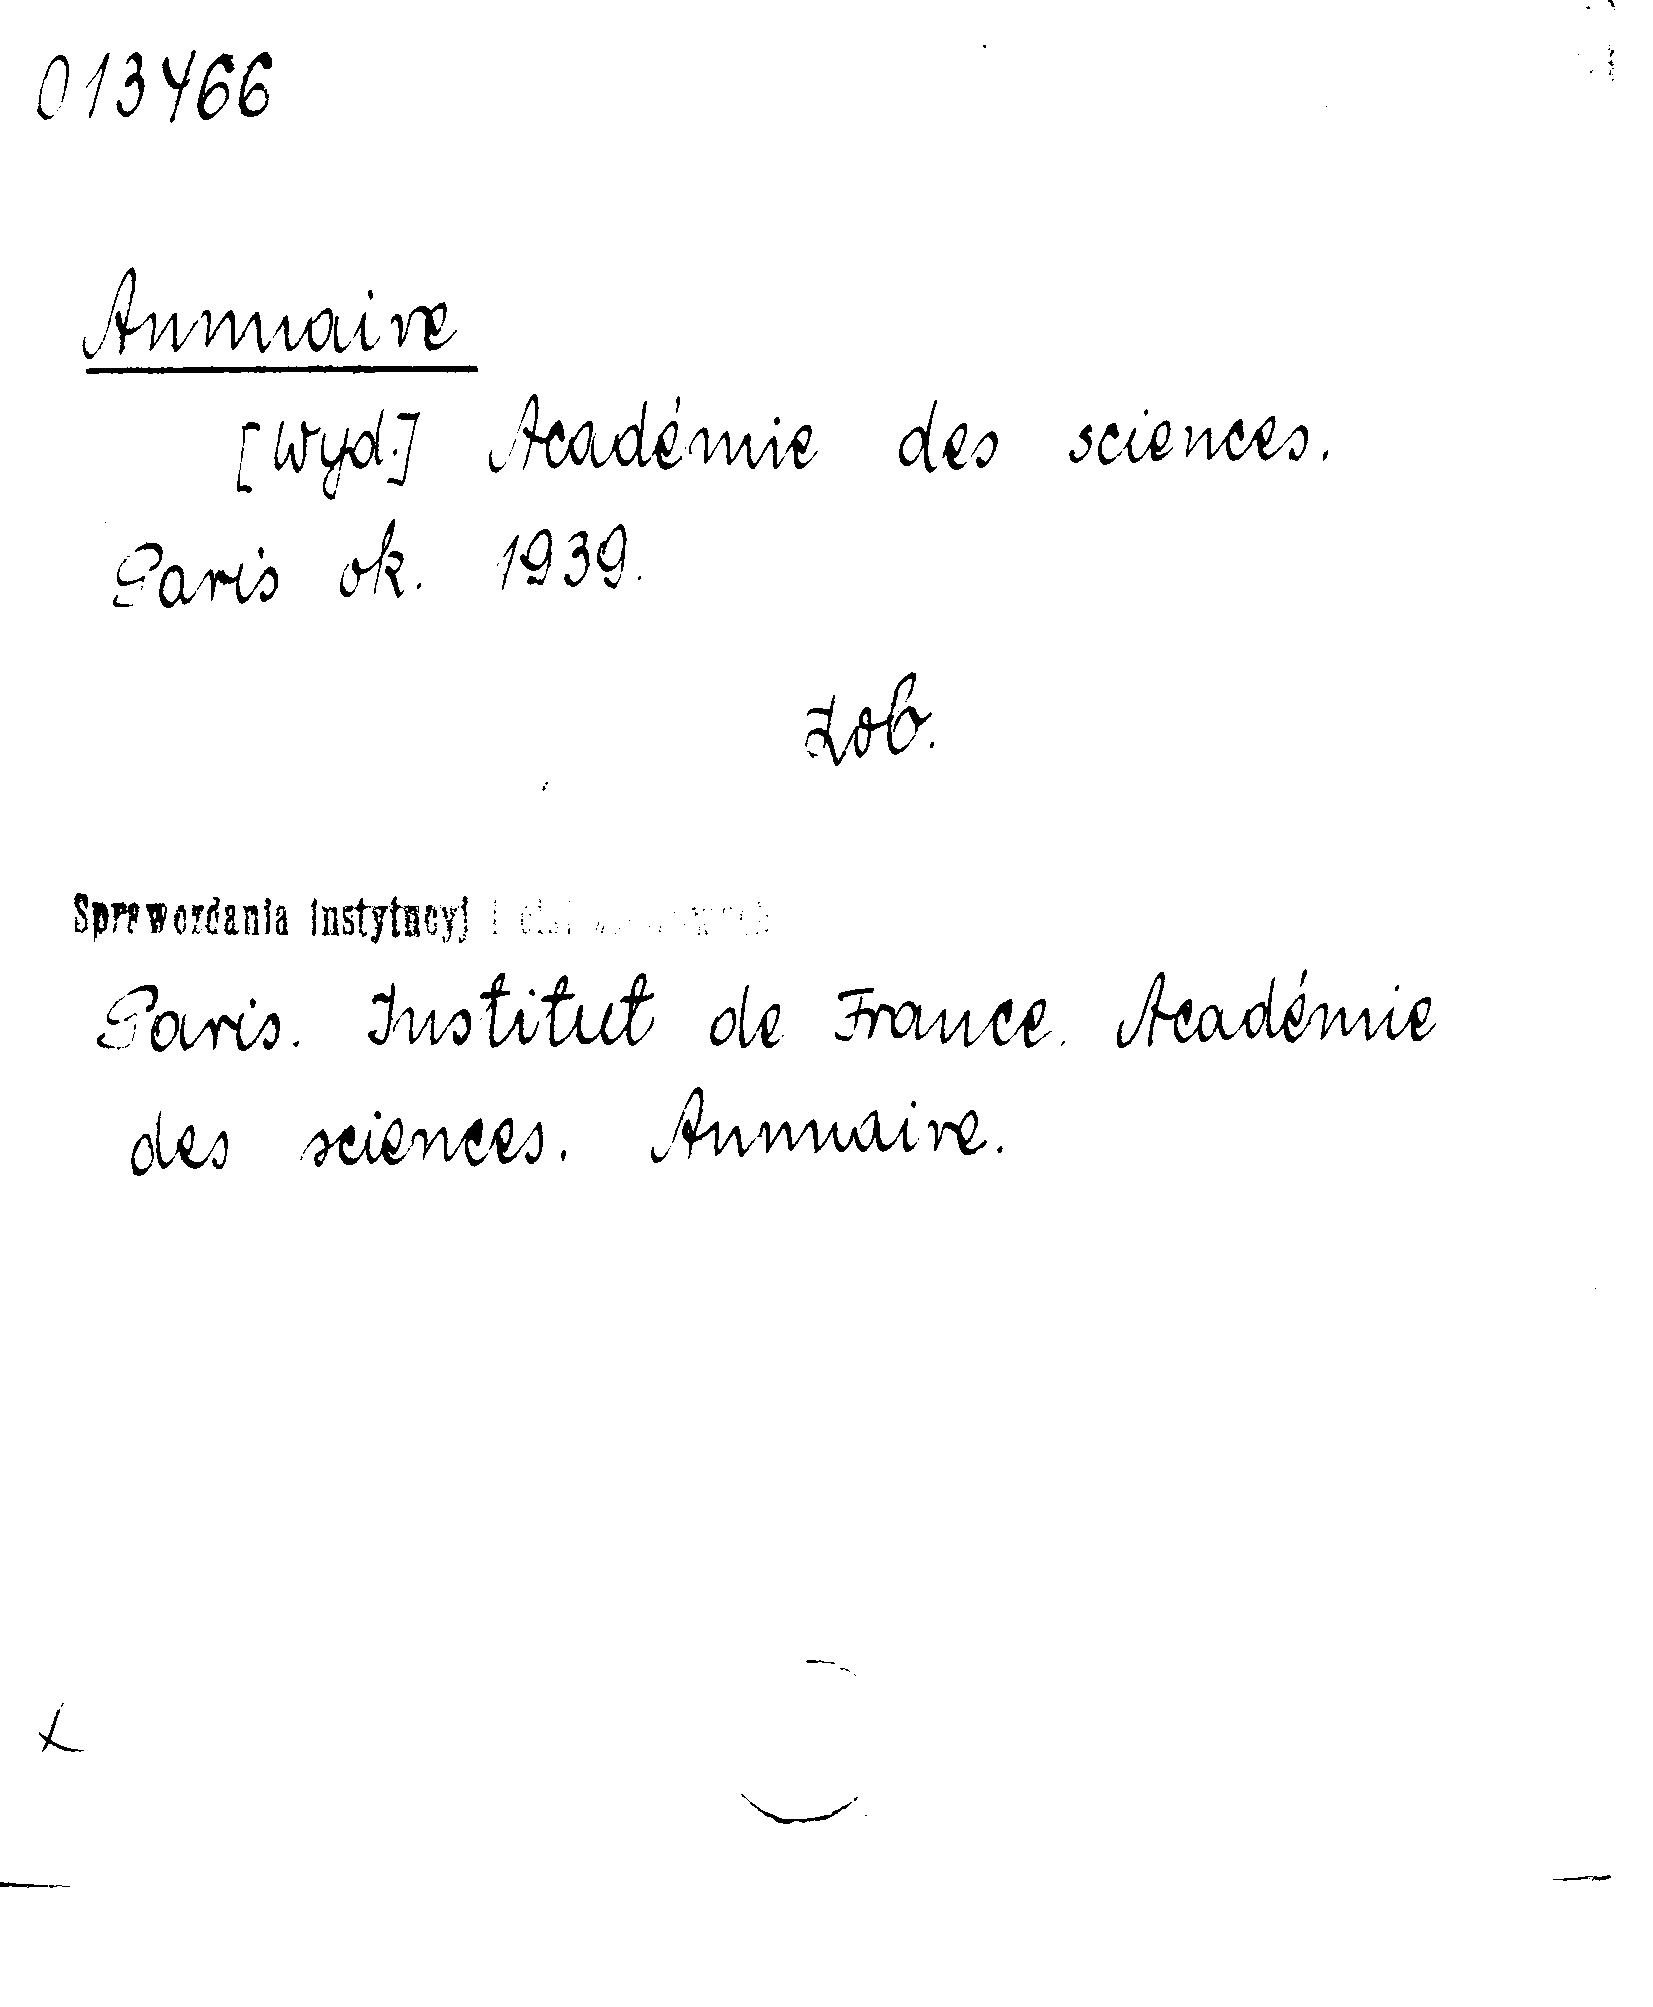 013466
Annuaire
[Wyd.] Académie des sciences.
Paris ok. 1939.
Zob.
Sprawozdania instytucyj i
Paris. Institut de France. Académie
des sciences. Annuaire.